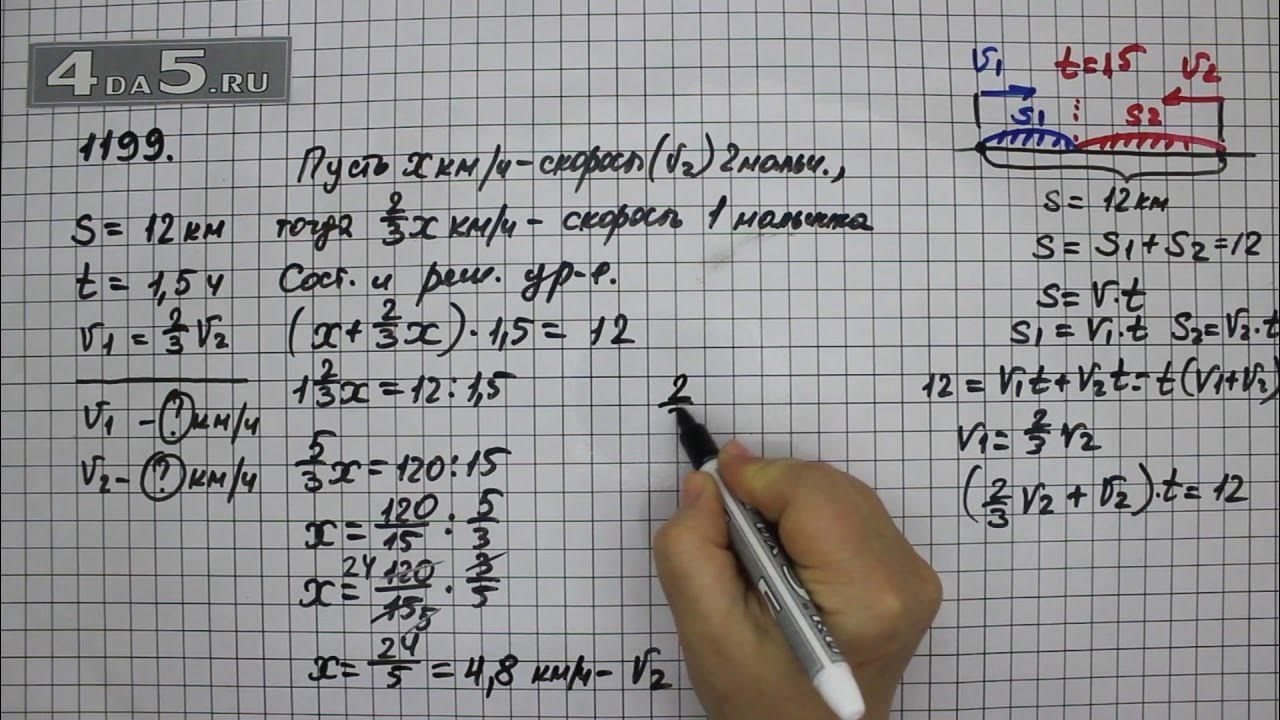 4DA5.RU
1199.
S = 12 км
t = 1,5 ч
V1 = 2/3 V2
V1 - ? км/ч
V2 - ? км/ч
Пусть x км/ч - скорость (V2) 2 мальч.,
тогда 2/3 x км/ч - скорость 1 мальчика
Сост. и реш. ур-е.
(x + 2/3 x) · 1,5 = 12
1 2/3 x = 12 : 1,5
5/3 x = 120 : 15
x = 120/15 : 5/3
x = 24 120/15 5 · 3/5
x = 24/5 = 4,8 км/ч - V2
2
V1 t = 1,5 V2
S1 S2
S = 12 км
S = S1 + S2 = 12
S = V · t
S1 = V1 · t S2 = V2 · t
12 = V1 t + V2 t = t (V1 + V2)
V1 = 2/3 V2
(2/3 V2 + V2) · t = 12